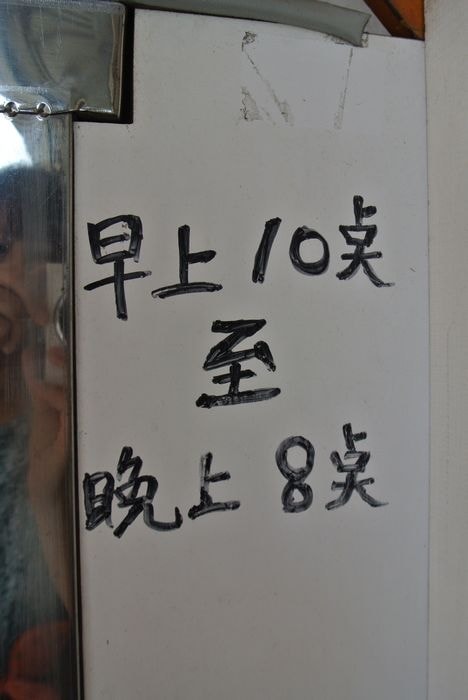 早上10点
至
晚上8点